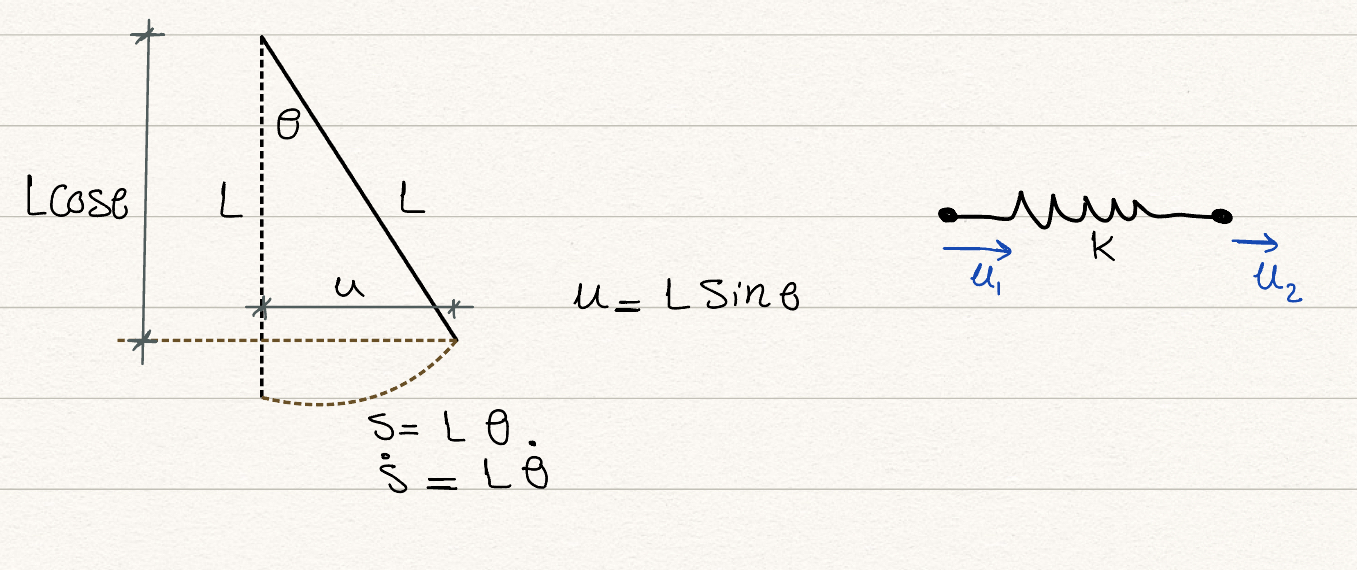 θ
Lcosθ
L
L
u
u = L Sinθ
S = L θ.
ṡ = L θ̇
k
u₁
u₂